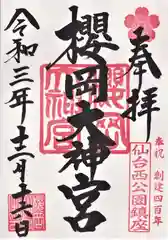 奉拝
奉祝 創建四百年
仙台西公園鎮座
櫻岡大神宮
令和三年十二月十六日